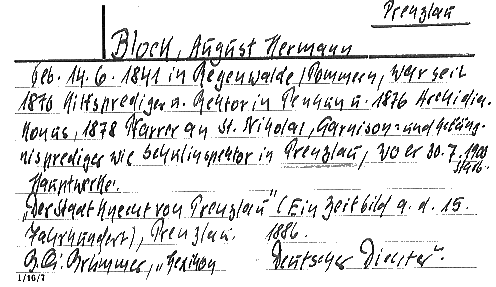 Prenzlau
Block, August Hermann
Geb. 14.6.1841 in Regenwalde/Pommern, war seit
1870 Hilfsprediger u. Rektor in Penkun u. 1876 Archidia-
konus, 1878 Pfarrer an St. Nikolai, Garnison- und Gefäng-
nisprediger wie Schulinspektor in Prenzlau, wo er 30.7.1903
starb.
Hauptwerke:
„Der Stadtknecht von Prenzlau" (Ein Zeitbild a. d. 15.
Jahrhundert), Prenzlau. 1886.
Brümmer, „Lexikon Deutscher Dichter".
1/16/7